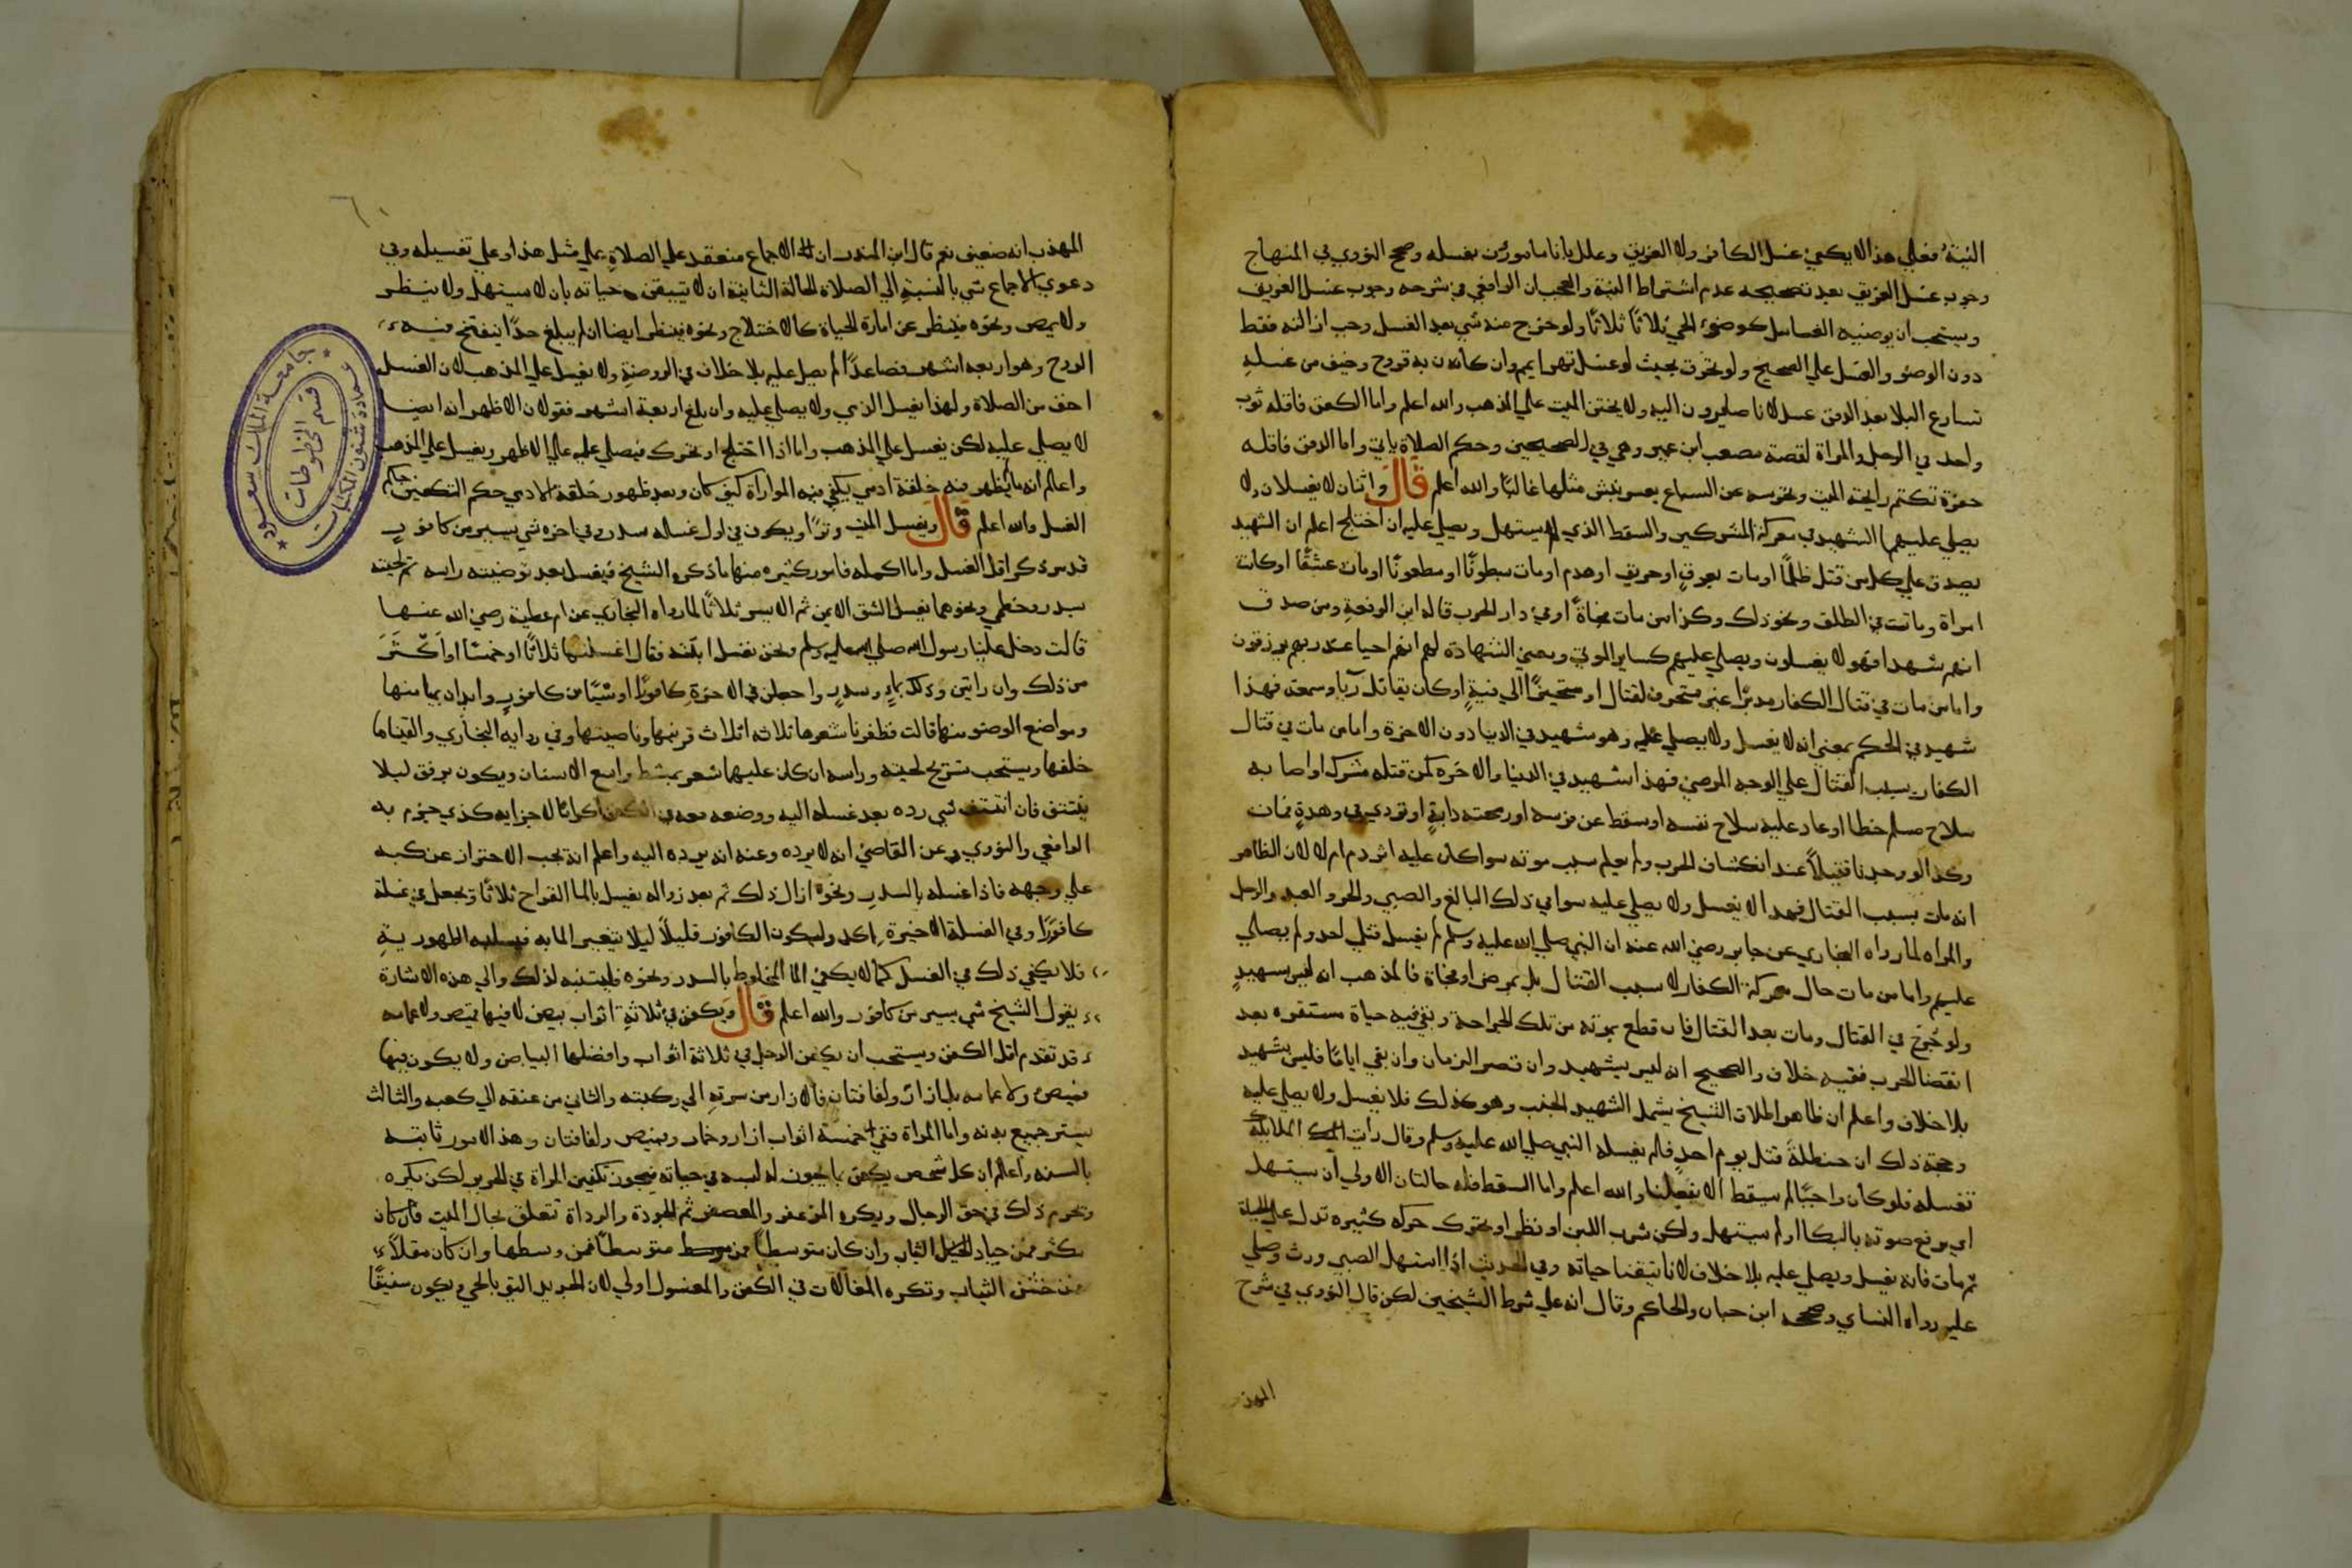 النية فعلي هذا لا يكفي غسل الكافر ولا الغريق وعلل بانا مامورين بغسله وصحح النووي في المنهاج
وجوب غسل الغريق بعد تصحيحه عدم اشتراط النية والعجب ان الرافعي في شرحه وجوب غسل الغريق
ويستحب ان يوضيه الغاسل كوضوء الحي ثلاثا ثلاثا ولو خرج منه شي بعد الغسل وجب ازالته فقط
دون الوضو والغسل علي الصحيح ولو تحرق بحيث لو غسل تهرا يمم وان كان به قروح وخيف من غسله
تسارع البلا بعد الدفن غسل لانا صايرون اليه ولا يختن الميت علي المذهب والله اعلم واما الكفن فاقله ثوب
واحد في الرجل والمراة لقصة مصعب ابن عمير وهي في الصحيحين وحكم الصلاة ياتي واما الدفن فاقله
حفرة تكتم رايحة الميت وتحرسه عن السباع بعسر نبش مثلها غالبا والله اعلم قال واثنان لا يغسلان ولا
يصلي عليهما الشهيد في معركة المشركين والسقط الذي لم يستهل ويصلي عليه ان اختلج اعلم ان الشهيد
يصدق علي كل من قتل ظلما او مات بغرق او حريق او هدم او مات مبطونا او مطعونا او مات عشقا او كانت
امراة وماتت في الطلق ونحو ذلك وكذا من مات فجاة او في دار الحرب قاله ابن الرفعة ومن صدق
انهم شهدا فهو لا يغسلون ويصلي عليهم كساير الموتي ومعني الشهادة لهم انهم احيا عند ربهم يرزقون
واما من مات في قتال الكفار مدبرا غير متحرف لقتال او متحيزا الي فية او كان يقاتل ريا وسمعة فهذا
شهيد في الحكم بمعني انه لا يغسل ولا يصلي عليه وهو شهيد في الدنيا دون الاخرة واما من مات في قتال
الكفار بسبب القتال علي الوجه المرضي فهذا شهيد في الدنيا والاخره كمن قتله مشرك او اصابه
سلاح مسلم خطا او عاد عليه سلاح نفسه او سقط عن فرسه او رمحته دابة او تردي في وهدة فمات
وكذا لو وجدنا قتيلا عند انكشاف الحرب ولم يعلم سبب موته سوا كان عليه اثر دم ام لا لان الظاهر
انه مات بسبب القتال فهذا لا يغسل ولا يصلي عليه سوا في ذلك البالغ والصبي والحر والعبد والرجل
والمراه لما رواه البخاري عن جابر رضي الله عنه ان النبي صلي الله عليه وسلم لم يغسل قتلي احد ولم يصلي
عليهم واما من مات حال معركة الكفار لا بسبب القتال بل بمرض او فجاة فالمذهب انه ليس بشهيد
ولو جرح في القتال ومات بعد القتال فان قطع بموته من تلك الجراحة وبقي فيه حياة مستقره بعد
انقضا الحرب ففيه خلاف والصحيح انه ليس بشهيد وان قصر الزمان وان بقي اياما فليس بشهيد
بلا خلاف واعلم ان ظاهر اطلاق الشيخ يشمل الشهيد الجنب وهو كذلك فلا يغسل ولا يصلي عليه
وحجة ذلك ان حنظلة قتل يوم احد فلم يغسله النبي صلي الله عليه وسلم وقال رايت الملايكة
تغسله فلو كان واجبا لم يسقط الا بفعلنا والله اعلم واما السقط فله حالتان الاولي ان يستهل
اي يرفع صوته بالبكا او لم يستهل ولكن شرب اللبن او نظر او تحرك حركه كثيره تدل علي الحياة
ثم مات فانه يغسل ويصلي عليه بلا خلاف لانا تيقنا حياته وفي الحديث اذا استهل الصبي ورث وصلي
عليه رواه النساي وصححه ابن حبان والحاكم وقال انه علي شرط الشيخين لكن قال النووي في شرح
المهذب
المهذب انه ضعيف نعم قال ابن المنذر ان الاجماع منعقد علي الصلاة علي مثل هذا وعلي تغسيله وفي
دعوي الاجماع شي بالنسبة الي الصلاة الحالة الثانية ان لا تتيقن حياته بان لا يستهل ولا ينظر
ولا يمص ونحوه فينظر عن امارة الحياة كالاختلاج ونحوه فينظر ايضا ان لم يبلغ حدا ينفتح فيه
الروح وهو اربعة اشهر فصاعدا لم يصل عليه بلا خلاف في الروضة ولا يغسل علي المذهب لان الغسل
اخف من الصلاة ولهذا يغسل الذمي ولا يصلي عليه وان بلغ اربعة اشهر فقولان الاظهر انه ايضا
لا يصلي عليه لكن يغسل علي المذهب واما اذا اختلج او تحرك فيصلي عليه علي الاظهر ويغسل علي المذهب
واعلم انه ما لم يظهر فيه خلقة ادمي يكفي فيه المواراة كيف كان وبعد ظهور خلقة الادمي حكم التكفين حكم
الغسل والله اعلم قال ويغسل الميت وترا ويكون في اول غسله سدر وفي اخره شي يسير من كافور
قد مر ذكر اقل الغسل واما اكمله فامور كثيره منها ما ذكره الشيخ فيغسل بعد توضيته راسه ثم لحيته
بسدر وخطمي ونحوهما يغسل الشق الايمن ثم الايسر ثلاثا لما رواه البخاري عن ام عطية رضي الله عنها
قالت دخل علينا رسول الله صلي الله عليه وسلم ونحن نغسل ابنته فقال اغسلنها ثلاثا او خمسا او اكثر
من ذلك وان رايتن ذلك بماء وسدر واجعلن في الاخرة كافورا او شيئا من كافور وابدان بميامنها
ومواضع الوضو منها قالت فظفرنا شعرها ثلاثة اثلاث قرنيها وناصيتها وفي رواية البخاري والقيناها
خلفها ويستحب تسريح لحيته وراسه ان كان عليهما شعر بمشط واسع الاسنان ويكون برفق ليلا
ينتتف فان انتتف شي رده بعد غسله اليه ووضعه معه في الكفن اكراما لاجزايه كذي جزم به
الرافعي والنووي وعن القاضي انه لا يرده وعنه انه يرده اليه واعلم انه يجب الاحتراز عن كبه
علي وجهه فاذا غسله بالسدر ونحوه ازال ذلك ثم بعد زواله يغسل بالما القراح ثلاثا وتجعل في غسلة
كافورا وفي الغسلة الاخيرة اكد وليكون الكافور قليلا ليلا يتغير الما به فيسلبه الطهورية
فلا يكفي ذلك في الغسل كما لا يكفي الما المخلوط بالسدر ونحوه فليتنبه لذلك والي هذه الاشارة
بقول الشيخ شي يسير من كافور والله اعلم قال ويكفن في ثلاثة اثواب بيض لا فيها قميص ولا عمامه
قد تقدم اقل الكفن ويستحب ان يكفن الرجل في ثلاثة اثواب وافضلها البياض ولا يكون فيها
قميص ولا عمامه بل ازار ولفافتان فالازار من سرته الي ركبته والثاني من عنقه الي كعبه والثالث
يستر جميع بدنه واما المراة ففي خمسة اثواب ازار وخمار وقميص ولفافتان وهذ الامور ثابته
بالسنه واعلم ان كل شخص يكفن بما يجوز له لبسه في حياته فيجوز تكفين المراة في الحرير لكن يكره
وتحرم ذلك في حق الرجال ويكره المزعفر والمعصفر ثم الجودة والرداة تتعلق بحال الميت فان كان
مكثر فمن جياد الثياب وان كان متوسطا فمن وسطها وان كان مقلا
فمن خشن الثياب وتكره المغالات في الكفن والمغسول اولي لان الجديد اليق بالحي ويكون سفيقا
جامعة الملك سعود
عمادة شئون المكتبات
قسم المخطوطات